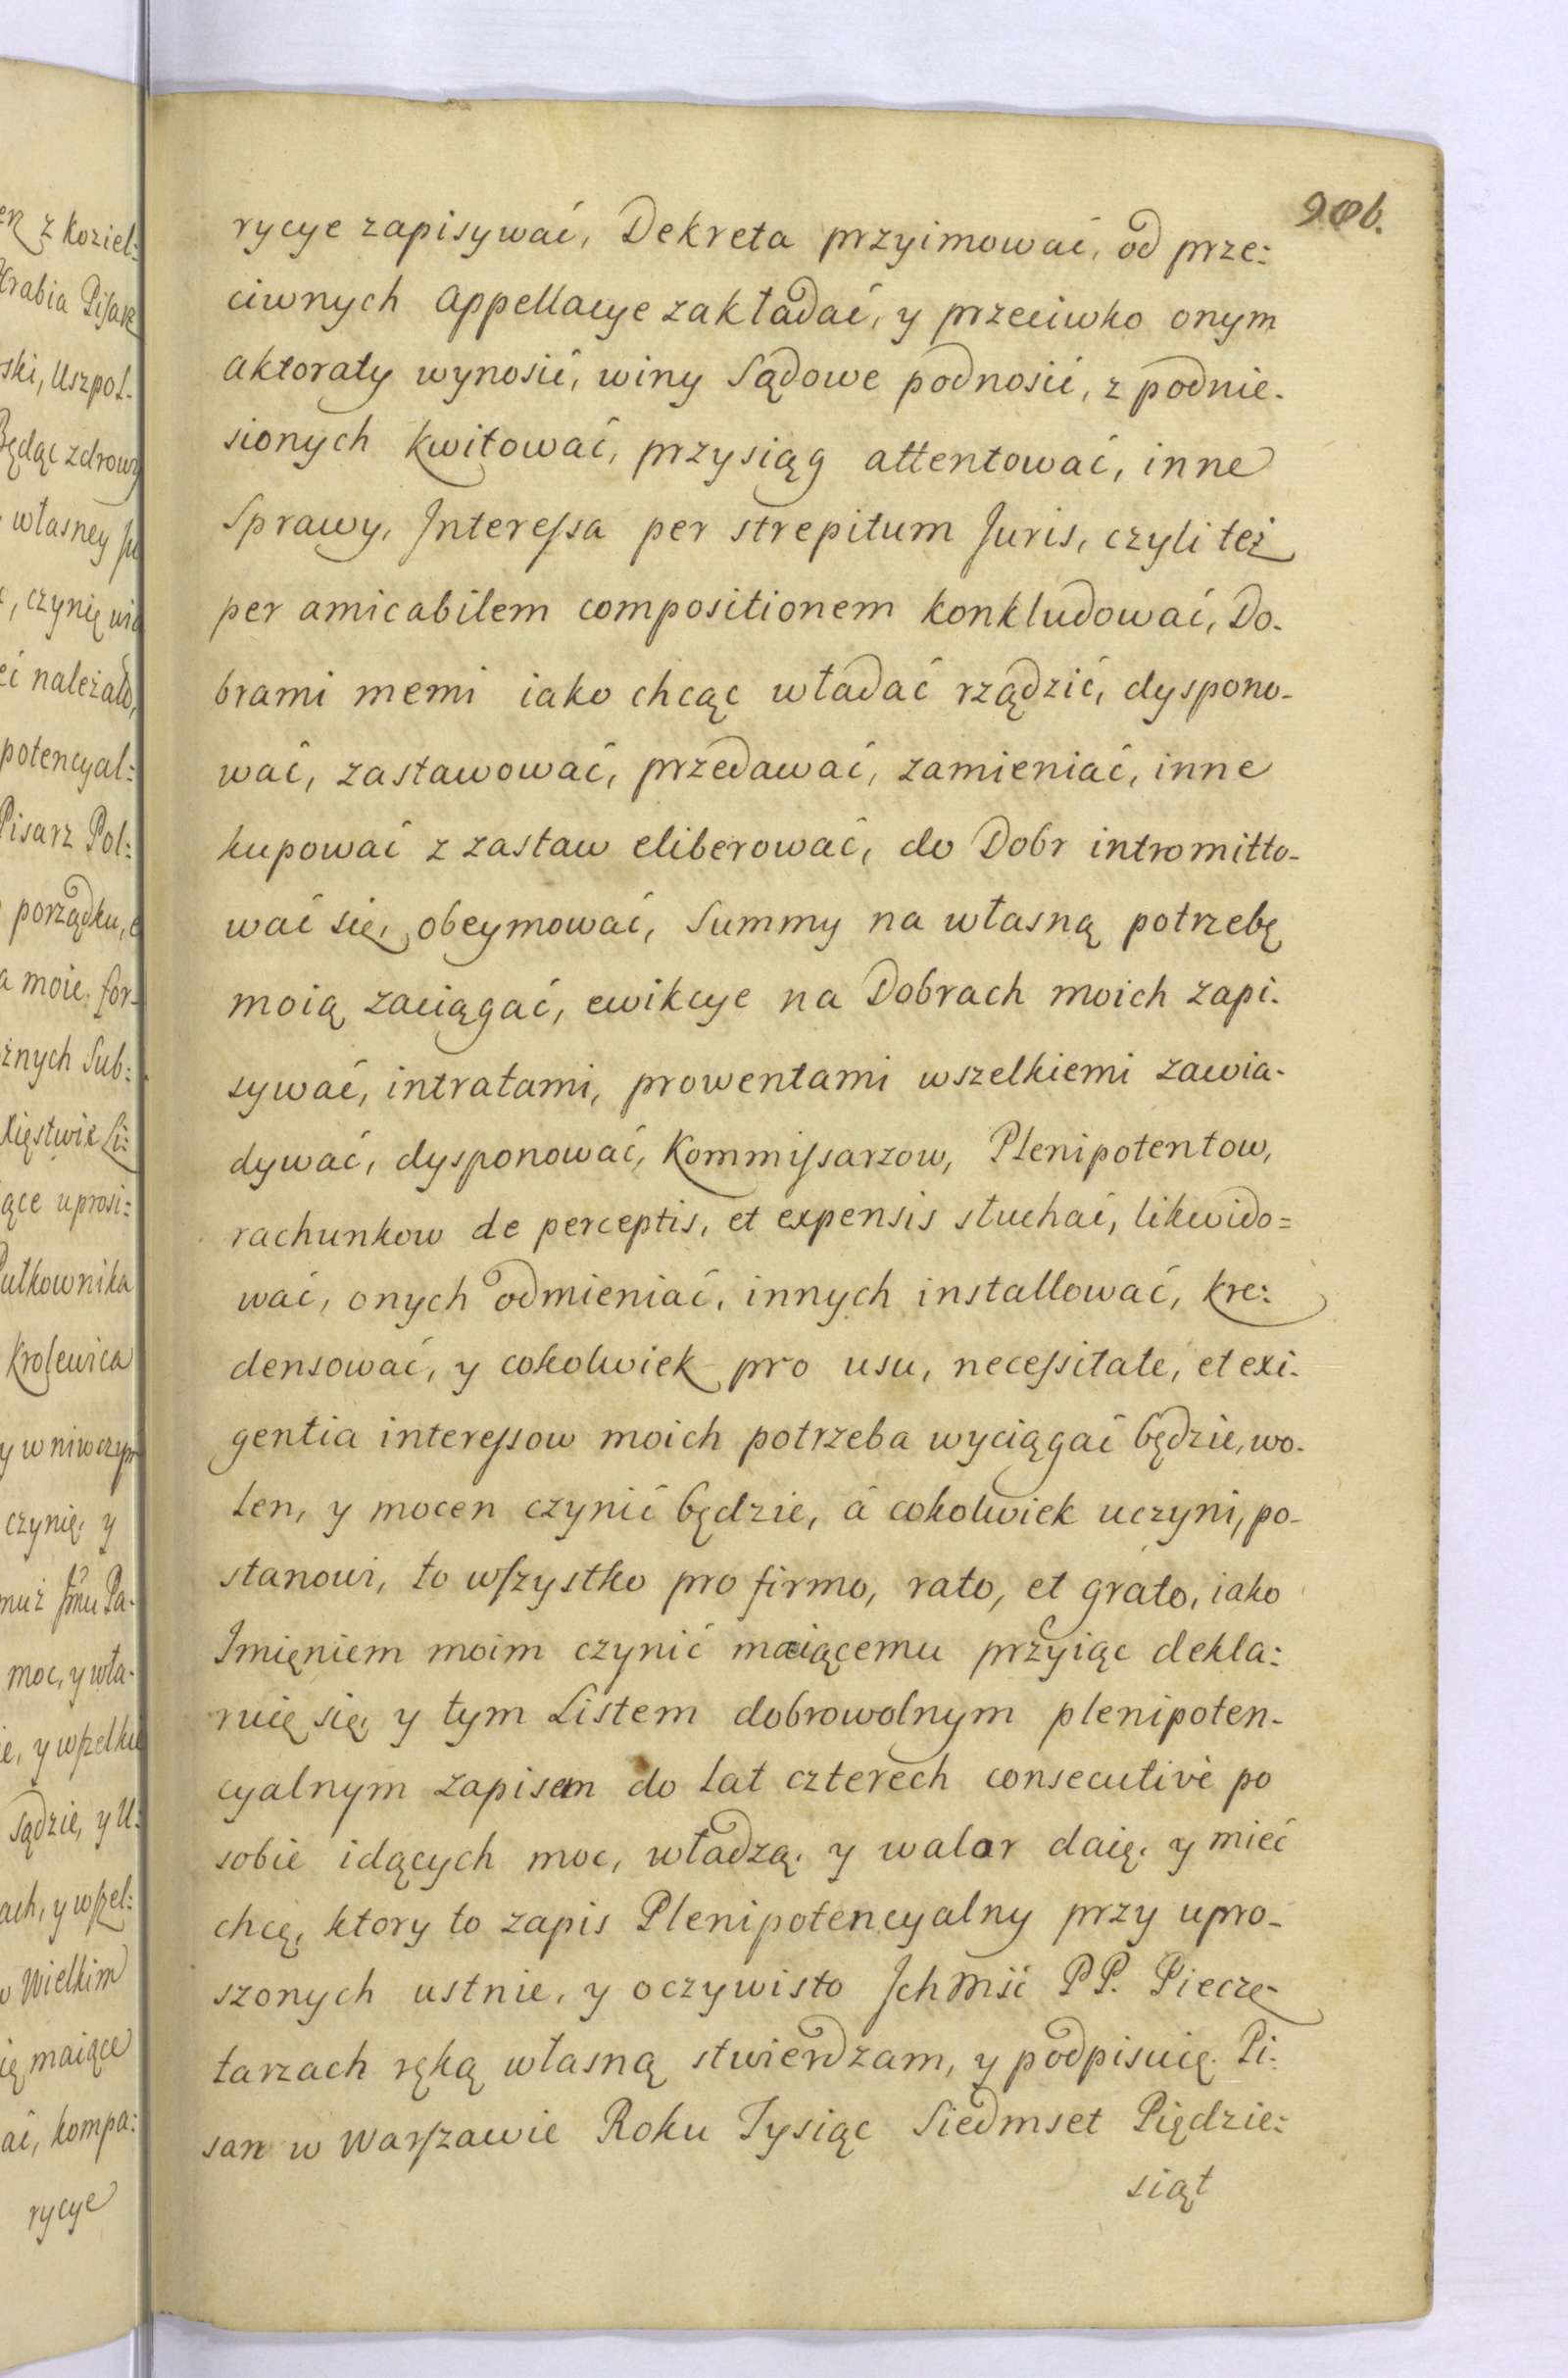 906.
rycye zapisywać, Dekreta przyimować, od prze:
ciwnych appellacye zakładać, y przeciwko onym
aktoraty wynosić, winy Sądowe podnosić, z podnie-
sionych kwitować, przysiąg attentować, inne
Sprawy, Interessa per strepitum Juris, czyli też
per amicabilem compositionem konkludować, Do-
brami memi iako chcąc władać rządzić, dyspono-
wać, zastawować, przedawać, zamieniać, inne
kupować z zastaw eliberować, do Dobr intromitto-
wać się, obeymować, Summy na własną potrzebę
moią zaciągać, ewikcye na Dobrach moich zapi-
sywać, intratami, prowentami wszelkiemi zawia-
dywać, dysponować, Kommissarzow, Plenipotentow,
rachunkow de perceptis, et expensis słuchać, likwido=
wać, onych odmieniać, innych installować, kre:
densować, y cokolwiek pro usu, necessitate, et exi-
gentia interessow moich potrzeba wyciągać będzie, wo-
len, y mocen czynić będzie, á cokolwiek uczyni, po-
stanowi, to wszystko pro firmo, rato, et grato, iako
Imięniem moim czynić maiącemu przyiąc dekla:
ruię się, y tym Listem dobrowolnym plenipoten-
cyalnym zapisem do lat czterech consecutivè po
sobie idących moc, władzą, y walor daię, y mieć
chcę, ktory to zapis Plenipotencyalny przy upro-
szonych ustnie, y oczywisto Jchmść PP. Pieczę-
tarzach ręką własną stwierdzam, y podpisuię. Pi-
san w Warszawie Roku Tysiąc Siedmset Piędzie:
siąt
z Koziel:
Hrabia Pisarz
ski, Uszpol-
Będąc zdrowy
własney
, czynię
należało,
potencyal:
Pisarz Pol:
porządku,
moie, for-
znych Sub:
Xięstwie Li:
ące uprosi:
Pułkownika
Krolewica
y w niwczym
czynię, y
Pa-
moc, y wła-
y wszelkie
Sądzie, y U:
ach, y wszel:
Wielkim
maiące
ać, kompa:
rycye